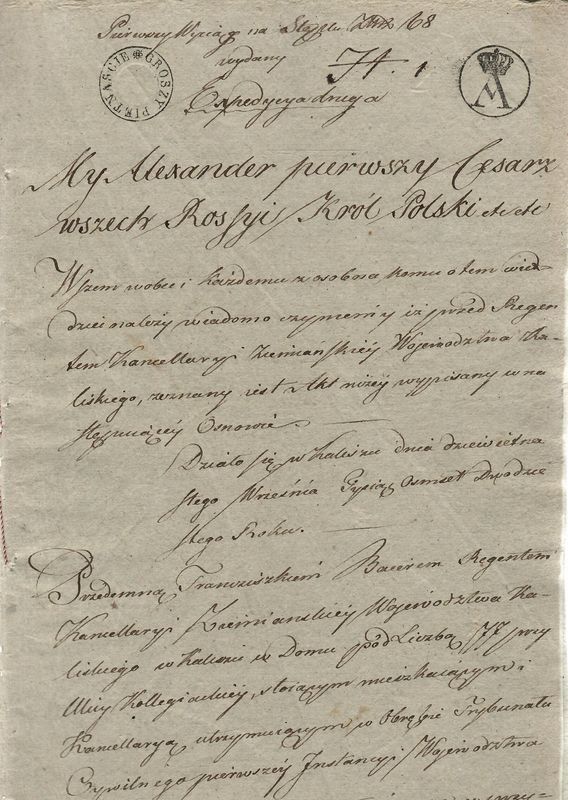 Pierwszy Wyciąg na Stęplu Złł 168
wydany
GROSZY PIĘTNAŚCIE
74. 1
A
Expedycya druga
My Alexander pierwszy Cesarz
wszech Rossyi Król Polski etc etc
Wszem wobec i każdemu z osobna komu o tem wie-
dzieć należy wiadomo czyniemy iż przed Regen
tem Kancellaryi Ziemiańskiéy Województwa Ka-
liskiego, zeznany iest Akt niżéy wypisany w na
stępuiącéy Osnowie.
Działo się w Kaliszu dnia dziewiętna
stego Września Tysiąc Osmset Dwudzie
stego Roku.
Przedemną Franciszkiem Regentem
Kancellaryi Ziemianskiéy Województwa Ka-
liskiego w Kaliszu w Domu pod Liczbą 177 przy
Ulicy Kollegiackiéy, stoiącym mieszkaiącym i
Kancellaryą utrzymuiącym w Obrębie Trybunału
Cywilnego pierwszéy Instancyi Województwa